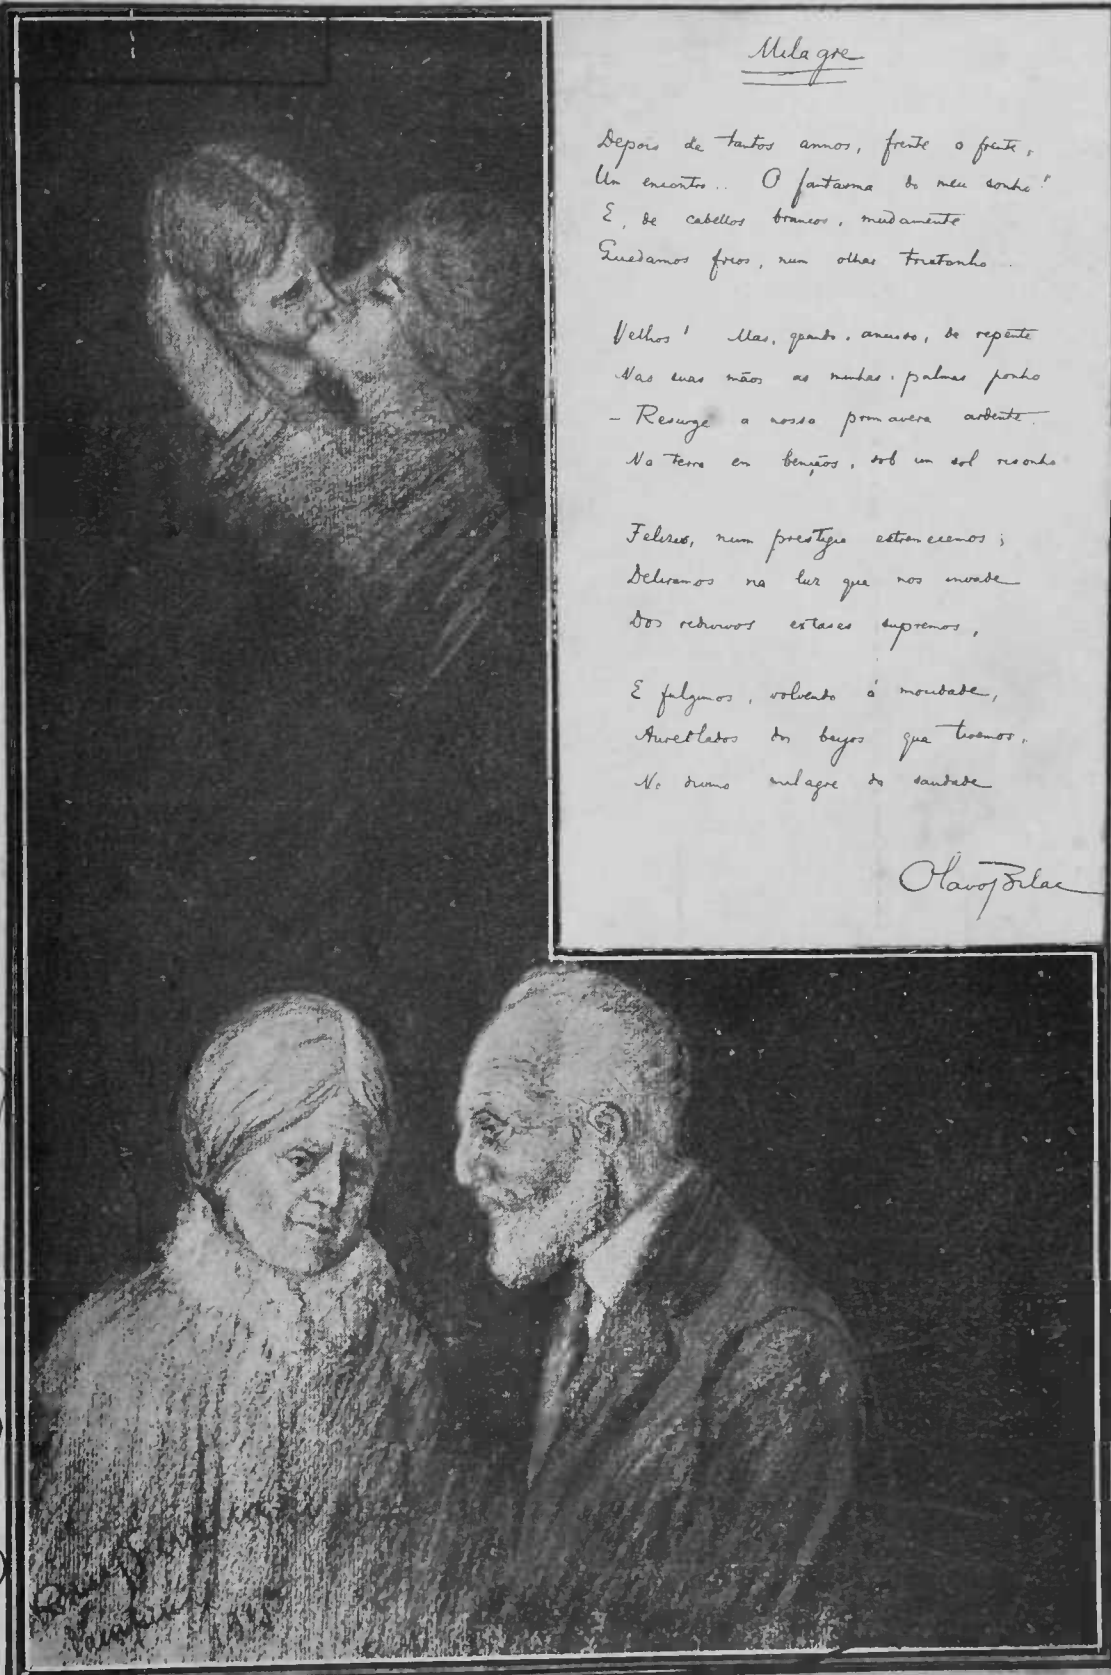 Milagre
Depois de tantos annos, frente a frente,
Um encontro... O fantasma do meu sonho!
E, de cabellos brancos, mudamente
Quedamos frios, num olhar tristonho.
Velhos! Mas, quando, ancioso, de repente
Nas suas mãos as minhas palmas ponho
- Resurge a nossa primavera ardente.
Na terra em bençãos, sob um sol risonho
Felizes, num prestigio estremecemos;
Deliramos na luz que nos invade
Dos redivivos extases supremos,
E fulgimos, volvendo á mocidade,
Aureolados dos beijos que tivemos,
No divino milagre da saudade
Olavo Bilac